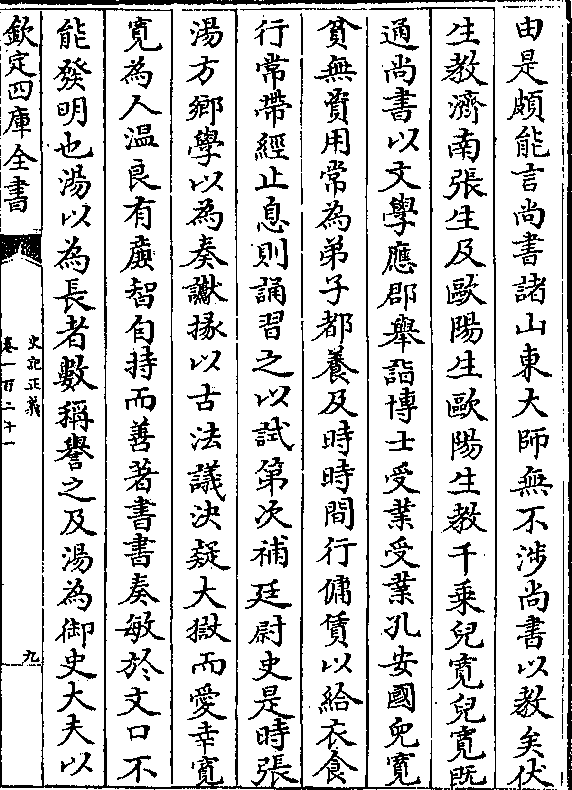 由是頗能言尚書諸山東大師無不涉尚書以教矣伏
生教濟南張生及歐陽生歐陽生教千乘兒寛兒寛既
通尚書以文學應郡舉詣博士受業受業孔安國兒寛
貧無資用常為弟子都養及時時間行傭賃以給衣食
行常帶經止息則誦習之以試第次補廷尉史是時張
湯方鄉學以為奏讞掾以古法議決疑大獄而愛幸寛
寛為人温良有亷智自持而善著書書奏敏於文口不
能發明也湯以為長者數稱譽之及湯為御史大夫以
欽定四庫全書
史記正義
卷一百二十一
九